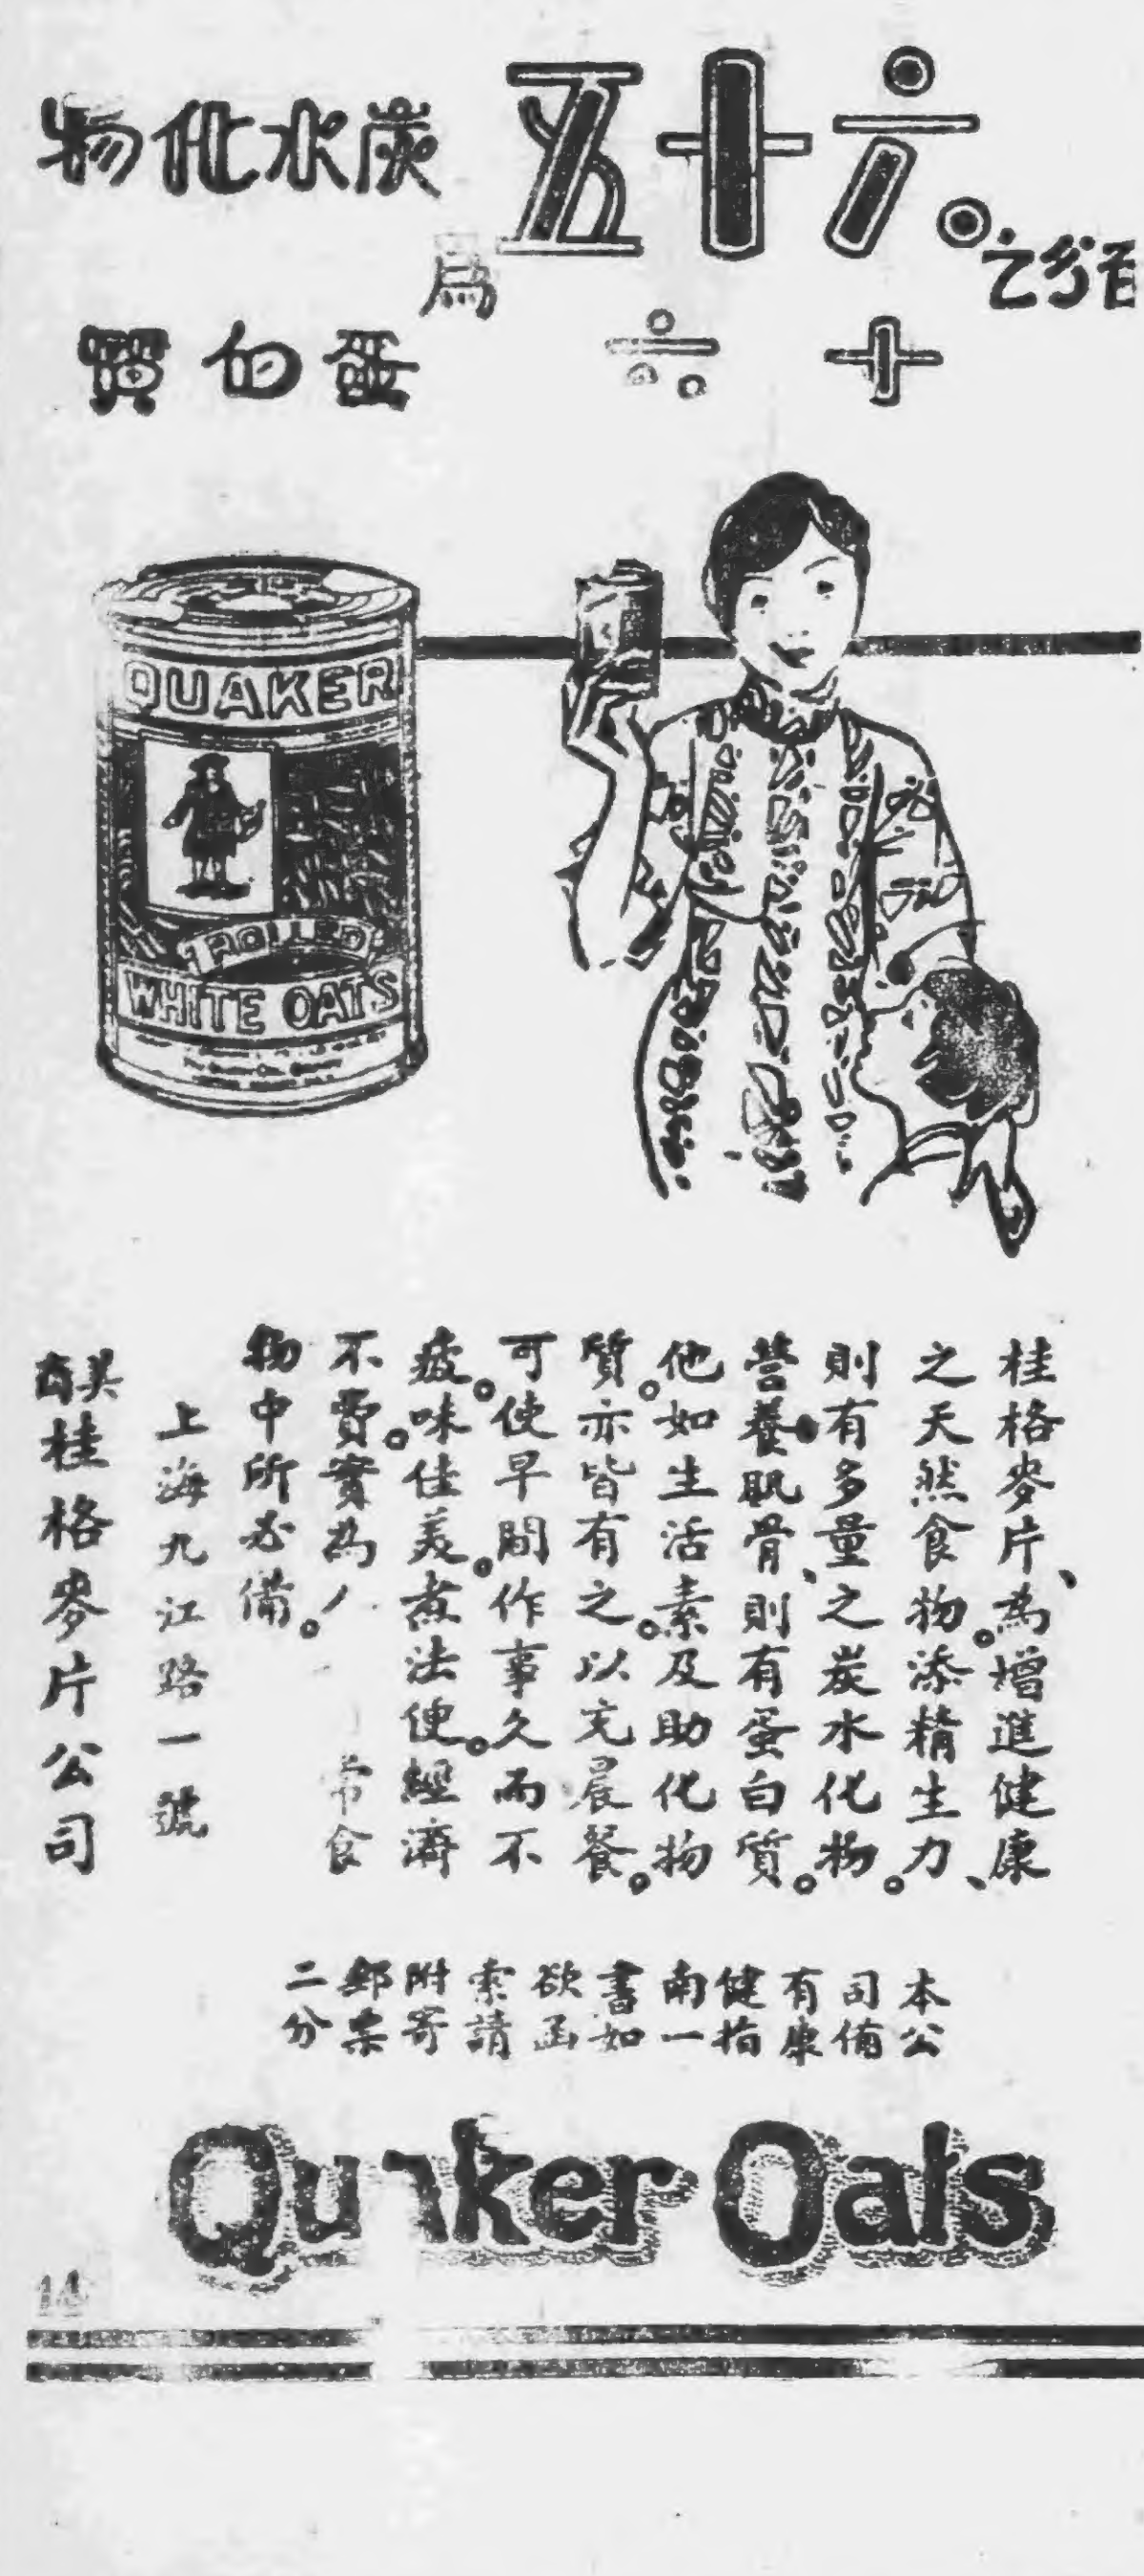 百分之
六十五
為
炭水化物
十六
蛋白質
QUAKER
ROLLED
WHITE OATS
桂格麥片、為增進健康
之天然食物。添精生力、
則有多量之炭水化物。
營養肌骨、則有蛋白質。
他如生活素及助化物
質。亦皆有之。以充晨餐。
可使早間作事久而不
疲。味佳美。煮法便。經濟
不費。實為常食
物中所必備。
上海九江路一號
美商桂格麥片公司
本公
司備
有康
健指
南一
書如
欲函
索請
附寄
郵票
二分
Quaker Oats
14